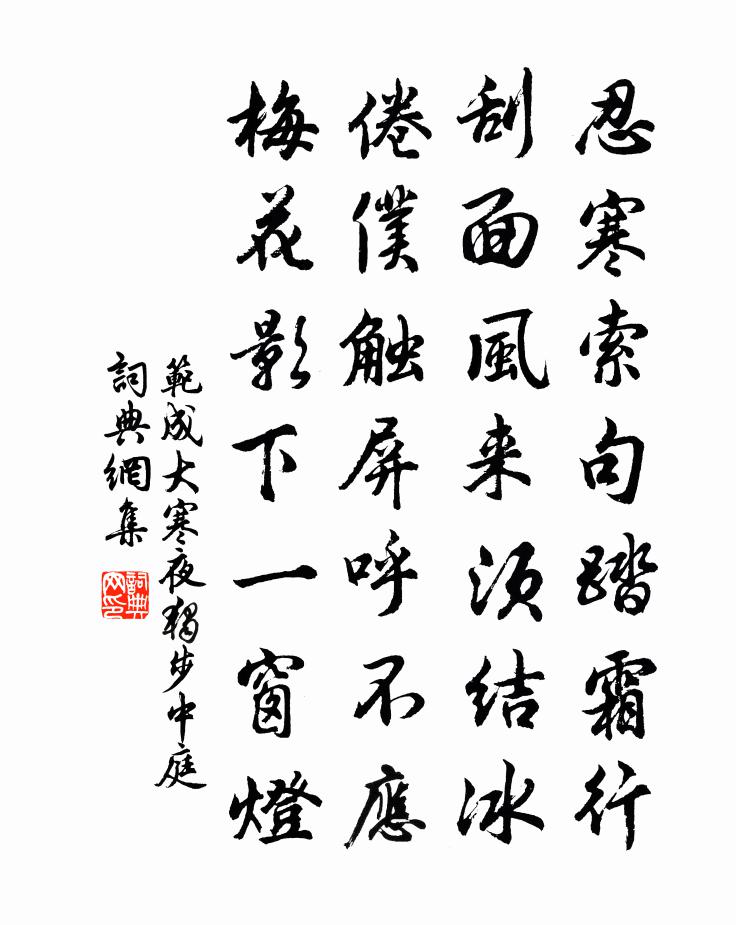 忍寒索句踏霜行
刮面風来须結冰
倦僕触屏呼不應
梅花影下一窗燈
範成大寒夜獨步中庭
詞典網集
詞典
网印